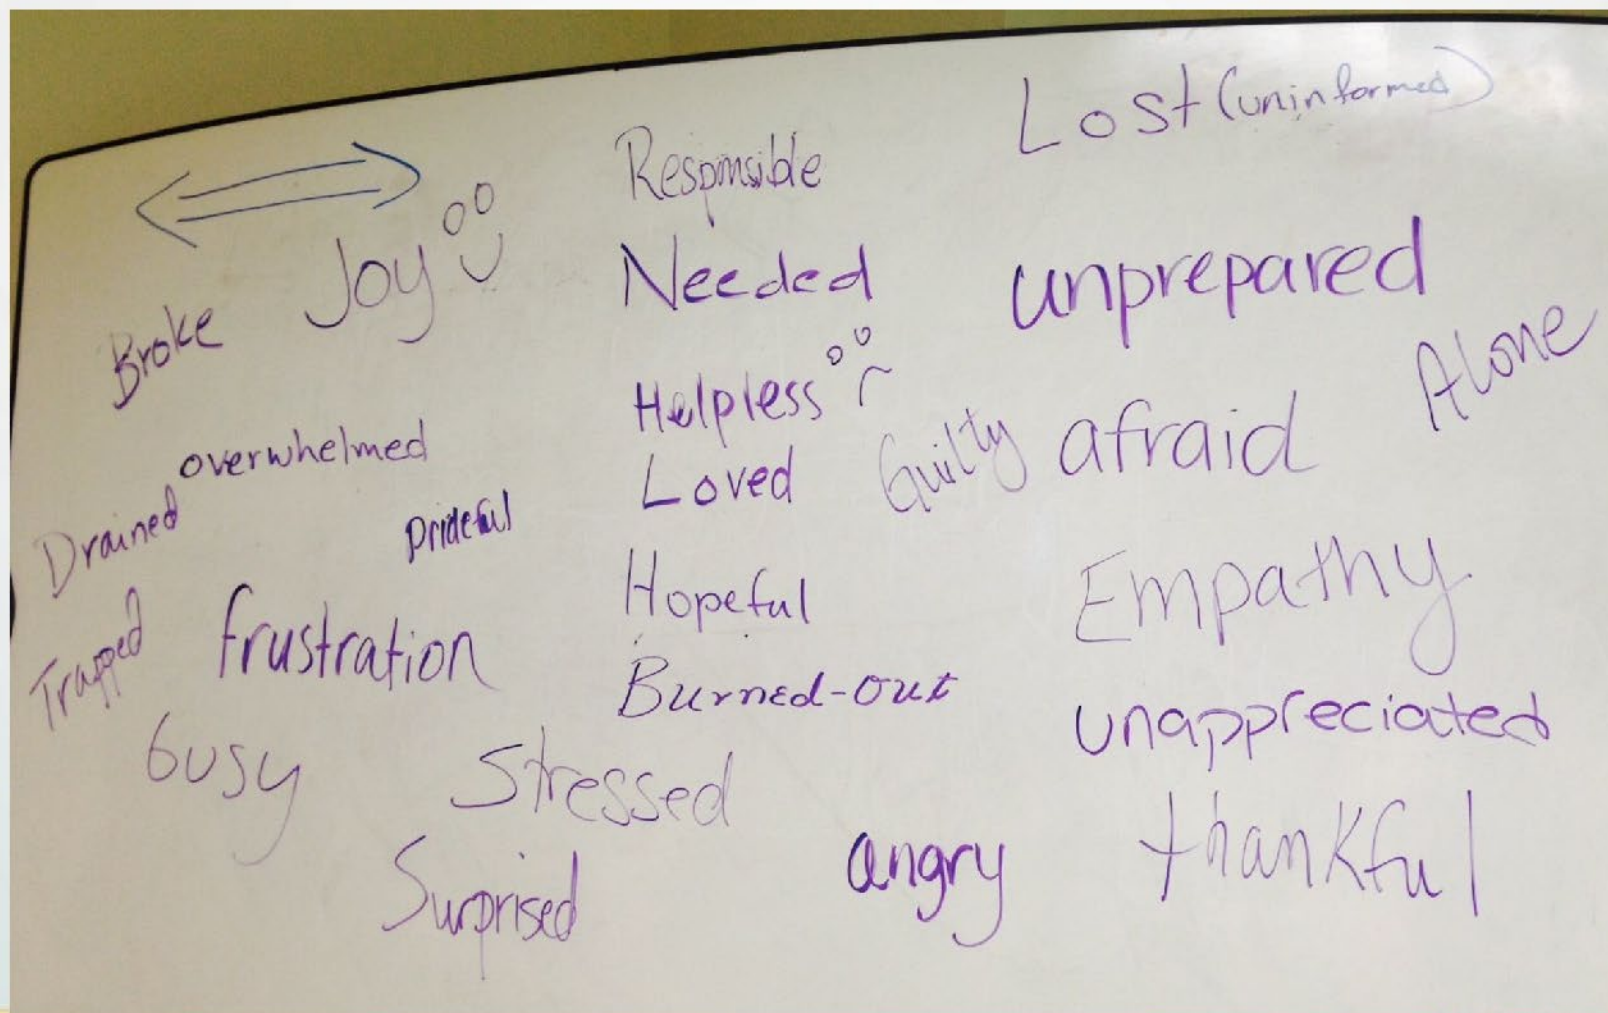 Lost (uninformed)
Responsible
Joy
Needed
unprepared
Broke
Alone
Helpless
overwhelmed
Loved
Guilty
afraid
Drained
prideful
Hopeful
Empathy
Trapped
frustration
Burned-out
unappreciated
busy
Stressed
thankful
angry
Surprised